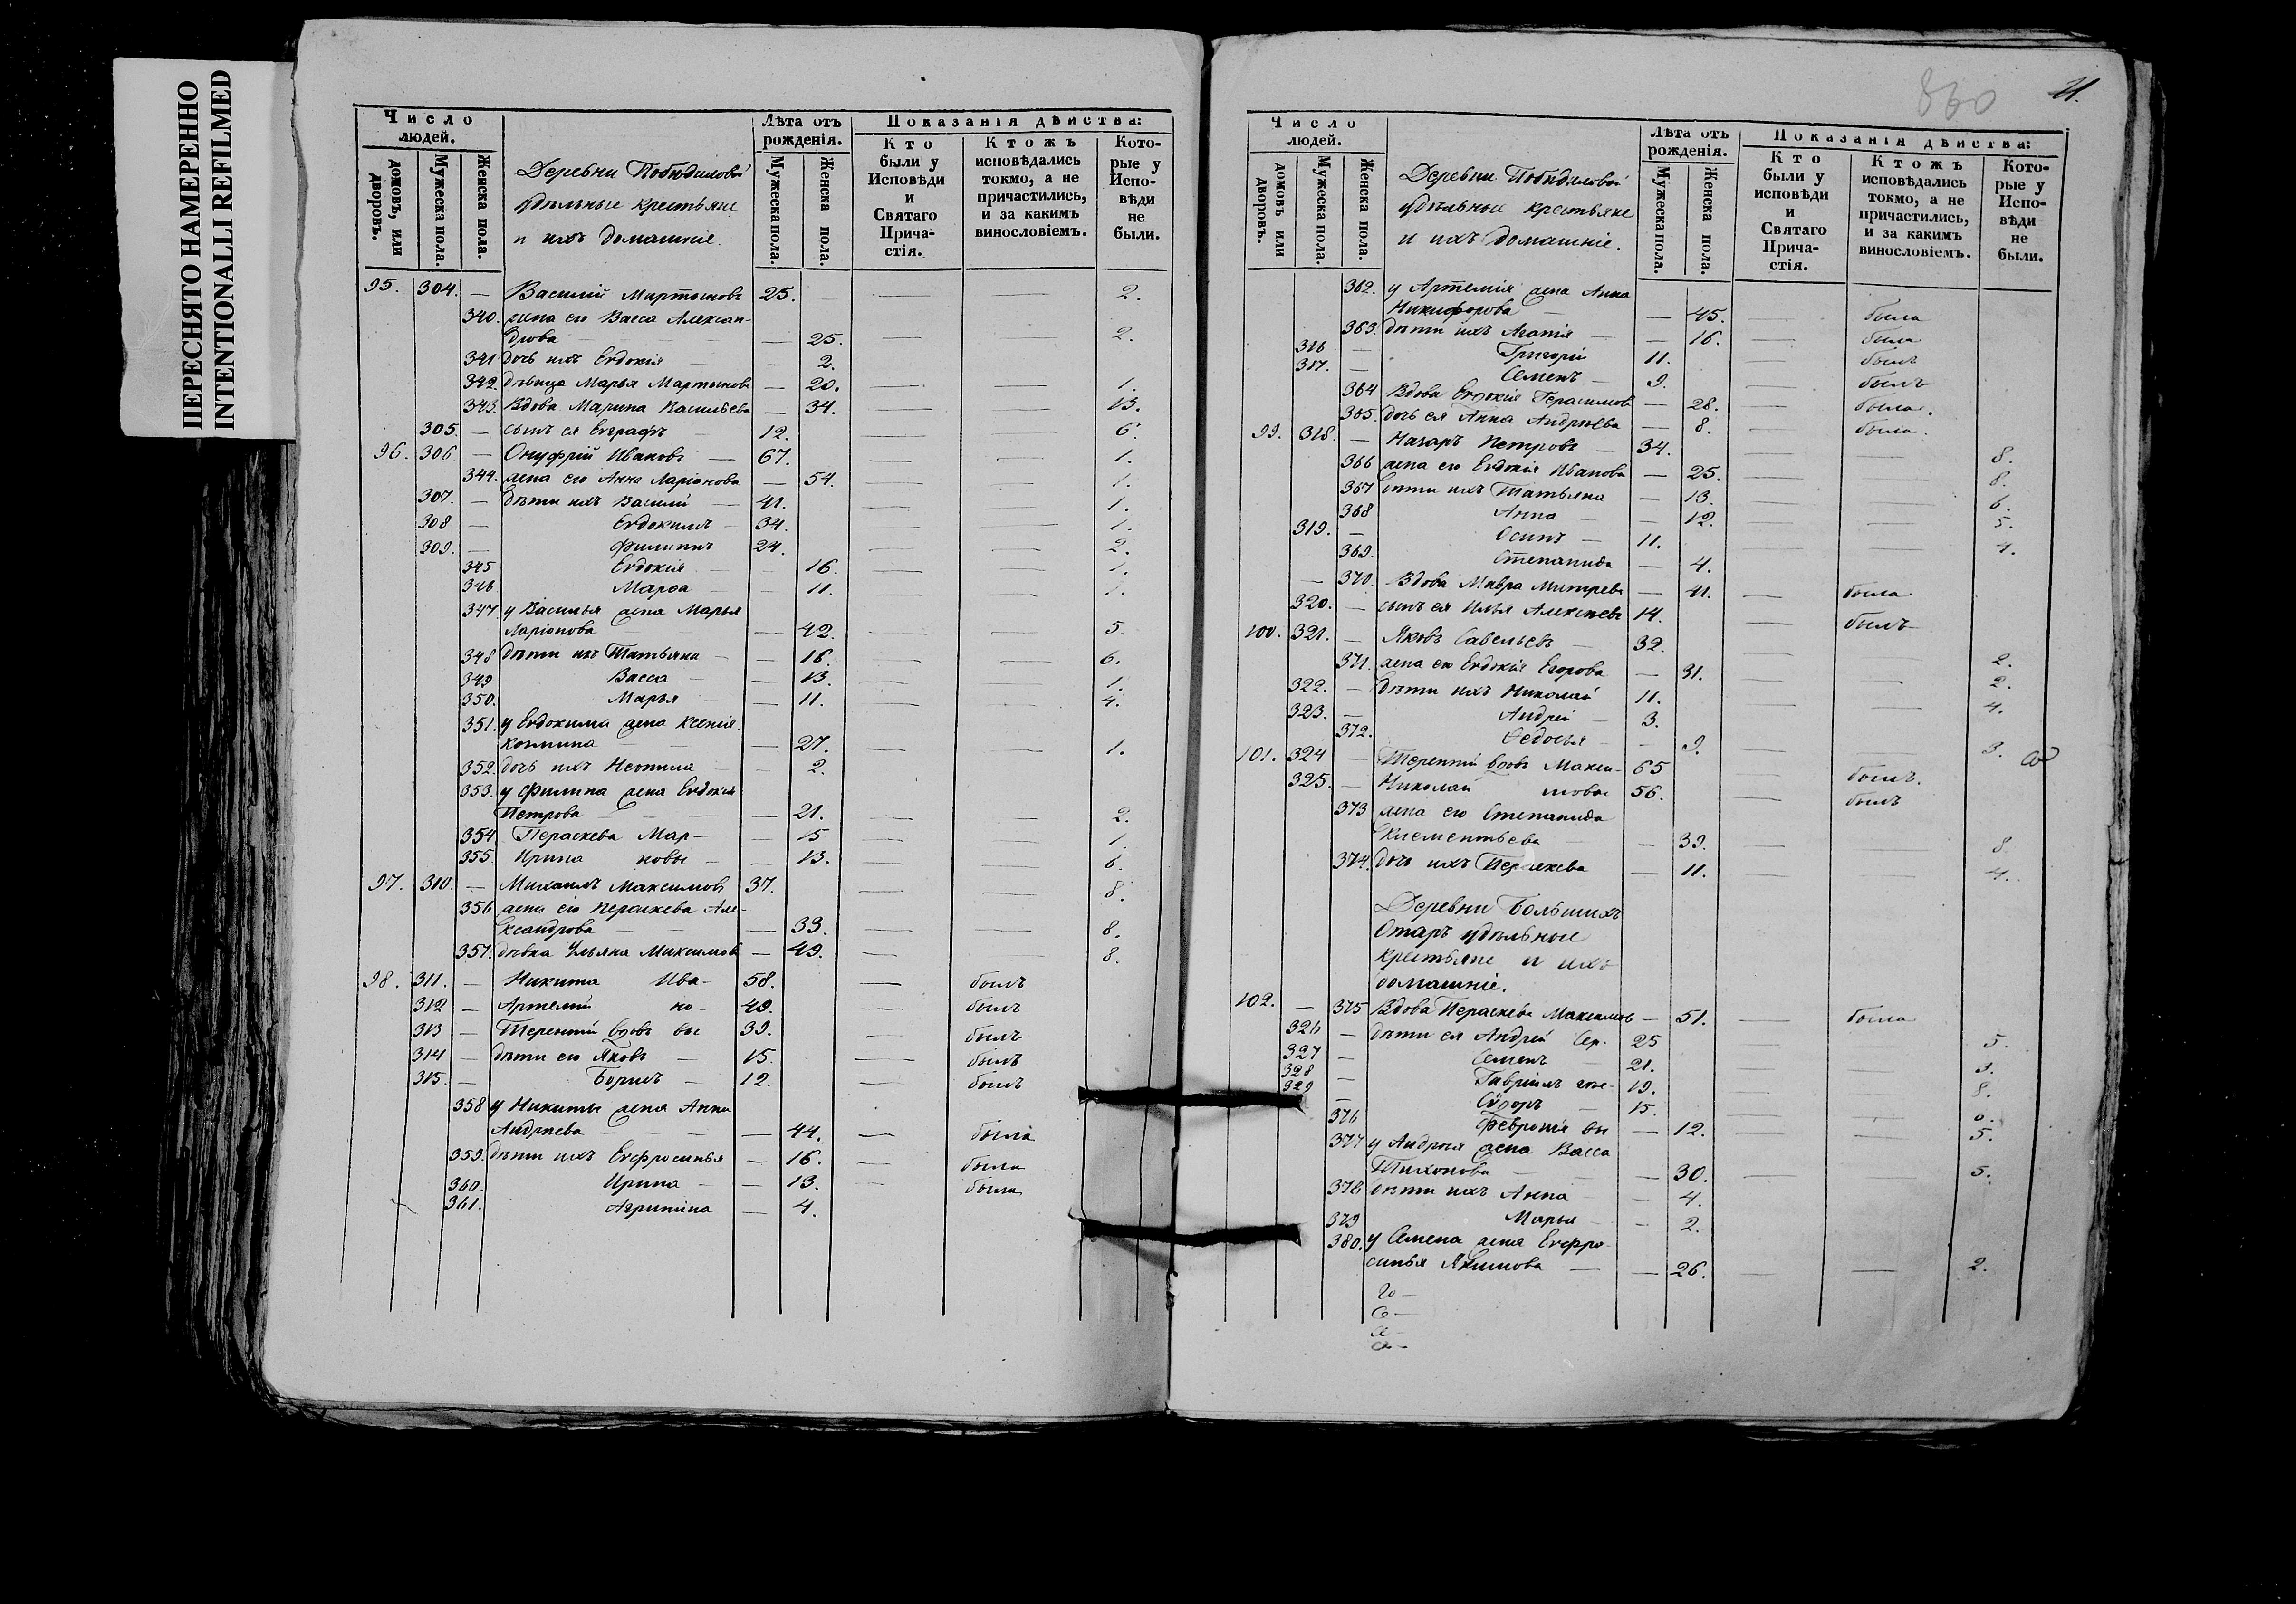 ПЕРЕСНЯТО НАМЕРЕННО
INTENTIONALLI REFILMED
Число людей.
домовъ, или дворовъ.
Мужеска пола.
Женска пола.
Деревни Побѣдиловой
удѣльные крестьяне
и ихъ домашніе.
Лѣта отъ рожденія.
Мужеска пола.
Женска пола.
Показанія дѣйства:
Кто были у Исповѣди и Святаго Причастія.
Ктожъ исповѣдались токмо, а не причастились, и за какимъ винословіемъ.
Которые у Исповѣди не были.
95. 304. — Василій Мартыновъ 25. — — 2.
340. жена его Васса Алексан-
дрова — 25. — — 2.
341 дочь ихъ Евдокія — 2.
342. дѣвица Марья Мартынова — 20. — — 1.
343. Вдова Марина Васильева — 34. — — 13.
305. — сынъ ея Евграфъ — 12. — — 6.
96. 306 — Онуфрій Ивановъ — 67. — — 1.
344. жена его Анна Ларіонова — 54. — — 1.
307. — дѣти ихъ Василій — 41. — — 1.
308 — Евдокимъ — 34. — — 1.
309. — Филиппъ 24. — — 2.
345 Евдокія — 16. — — 1.
346 Марѳа — 11. — — 1.
347. у Василья жена Марья
Ларіонова — 42. — — 5.
348 дѣти ихъ Татьяна — 16. — — 6.
349 Васса — 13. — — 1.
350. Марья — 11. — — 4.
351. у Евдокима жена Ксенія
Козмина — 27. — — 1.
352. дочь ихъ Неонила — 2.
353. у Филипа жена Евдокія
Петрова — 21. — — 2.
354 Пераскева Мар- — 15 — — 1.
355. Ирина новы — 13. — — 6.
97. 310. — Михаилъ Максимовъ 37. — — 8.
356 жена его Пераскева Але-
ксандрова — 33. — — 8.
357. дѣвка Ульяна Максимова — 49. — — 8.
98. 311. — Никита Ива- 58. — былъ
312 — Артемій но- 49. — былъ
313 — Терентій вдовъ вы 39. — былъ
314 — дѣти его Яковъ — 15. — былъ
315. — Борисъ — 12. — былъ
358 у Никиты жена Анна
Андреева — 44. — была
359. дѣти ихъ Евфросинья — 16. — была
360. Ирина — 13. — была
361. Агрипина — 4.
860 21.
Число людей.
домовъ или дворовъ.
Мужеска пола.
Женска пола.
Деревни Побѣдиловой
удѣльные крестьяне
и ихъ домашніе.
Лѣта отъ рожденія.
Мужеска пола.
Женска пола.
Показанія дѣйства:
Кто были у исповѣди и Святаго Причастія.
Ктожъ исповѣдались токмо, а не причастились, и за какимъ винословіемъ.
Которые у Исповѣди не были.
362. у Артемія жена Анна
Никифорова — 45. — была
363. дѣти ихъ Агапія — 16. — была
316 — Григорій 11. былъ
317. — Семенъ — 9. — былъ
364 Вдова Евдокія Герасимова — 28. — была.
365. дочь ея Анна Андреева — 8. — была.
99. 318. — Назаръ Петровъ — 34. — — 8.
366 жена его Евдокія Иванова — 25. — — 8.
367 дѣти ихъ Татьяна — 13. — — 6.
368 Анна — 12. — — 5.
319. — Осипъ — 11. — — 4.
369. Степанида — 4.
— 370. Вдова Мавра Митрева — 41. — была
320. — сынъ ея Илья Алексѣевъ 14. — былъ
100. 321. — Яковъ Савельевъ — 32. — — 2.
371. жена его Евдокія Егорова — 31. — — 2.
322. — дѣти ихъ Николай 11. — — 4.
323. — Андрей — 3.
372. Ѳедосья — 9. — — 3.
101. 324 — Терентій вдовъ Макси- 65 — былъ.
325. — Николай мовы 56. — былъ
373 жена его Степанида
Климентьева — 39. — — 8
374. дочь ихъ Пераскева — 11. — — 4.
Деревни Большихъ
Отаръ удѣльные
крестьяне и ихъ
домашніе.
102. — 375 Вдова Пераскева Максимова — 51. — была
326 — дѣти ея Андрей Сер- 25 — — 5.
327 — Семенъ — 21. — — 3.
328 — Гавріилъ гѣе- 19. — — 8.
329 — Сидоръ — 15.
376 Февронія вы — 12. — — 5.
377 у Андрея жена Васса
Тихонова — 30. — — 5.
378 дѣти ихъ Анна — 4.
379 Марья — 2.
380. у Семена жена Евфро-
синья Якимова — 26. — — 2.